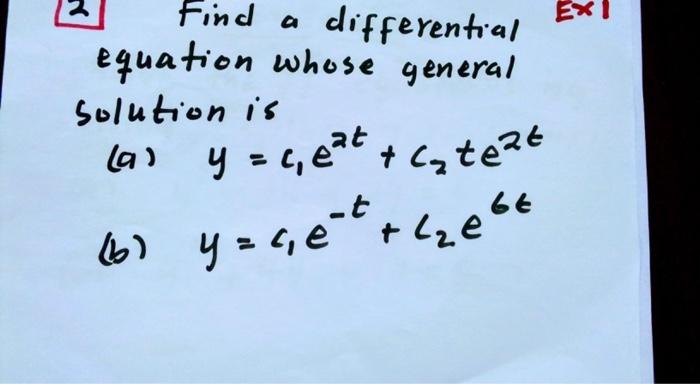 2 Find a differential EX1
equation whose general
solution is
(a) y = c₁e^{2t} + c₂te^{2t}
(b) y = c₁e^{-t} + c₂e^{6t}